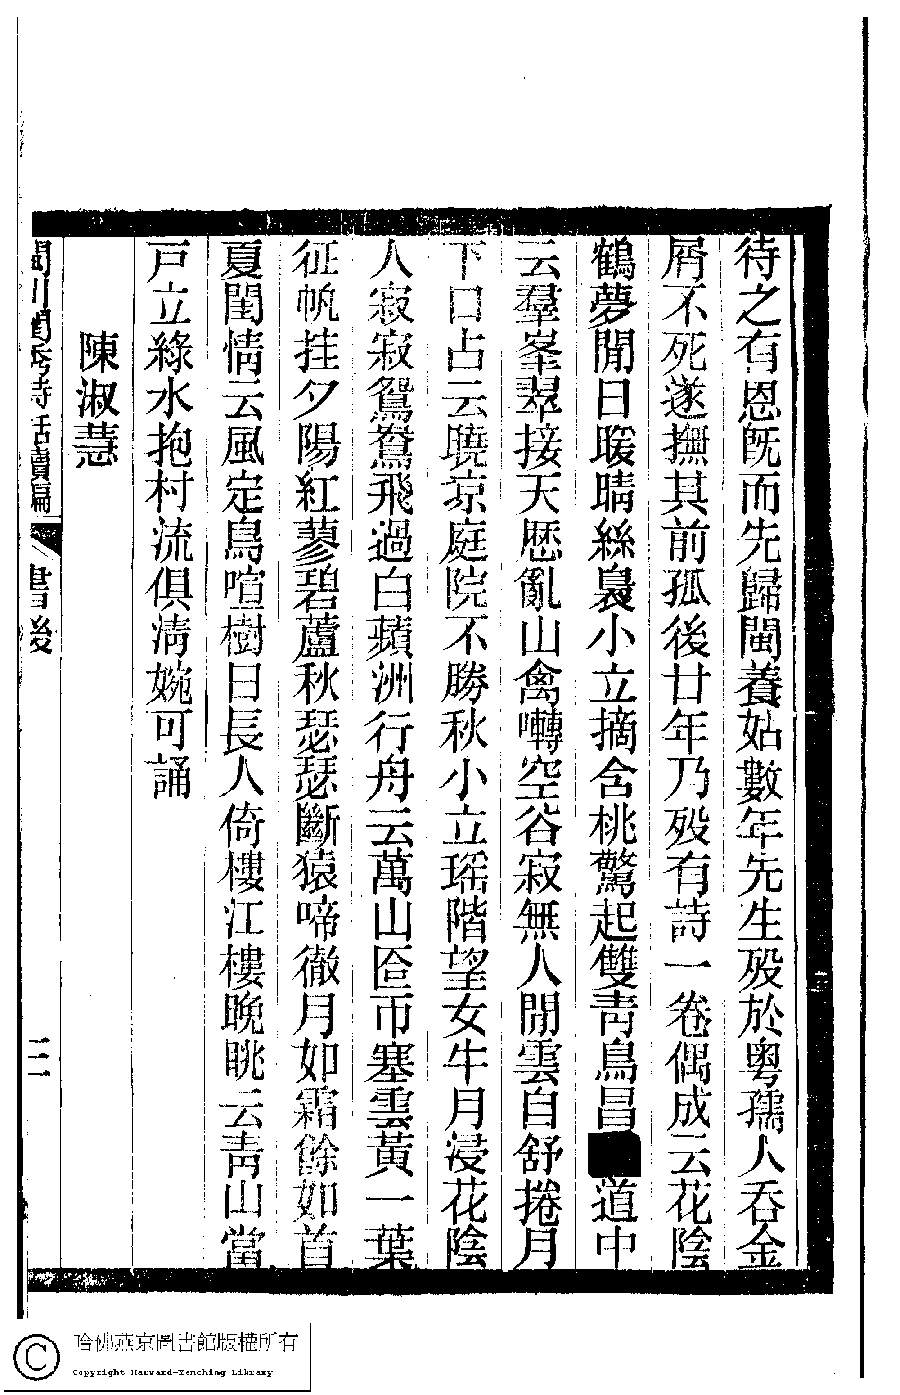 待之有恩旣而先歸閩養姑數年先生歿於粤孺人呑金
屑不死遂撫其前孤後廿年乃歿有詩一卷偶成云花陰
鶴夢閒日暖晴絲裊小立摘含桃驚起雙靑鳥昌道中
云羣峯翠接天歷亂山禽囀空谷寂無人閒雲自舒捲月
下口占云曉凉庭院不勝秋小立瑶階望女牛月浸花陰
人寂寂鴛鴦飛過白蘋洲行舟云萬山匼帀塞雲黃一葉
征帆挂夕陽紅蓼碧蘆秋瑟瑟斷猿啼徹月如霜餘如首
夏閨情云風定鳥喧樹日長人倚樓江樓晚眺云靑山當
戸立綠水抱村流俱淸婉可誦
陳淑慧
閩川閨秀詩話續編
書後
三
哈佛燕京圖書館版權所有
Copyright Harvard-Yenching Library